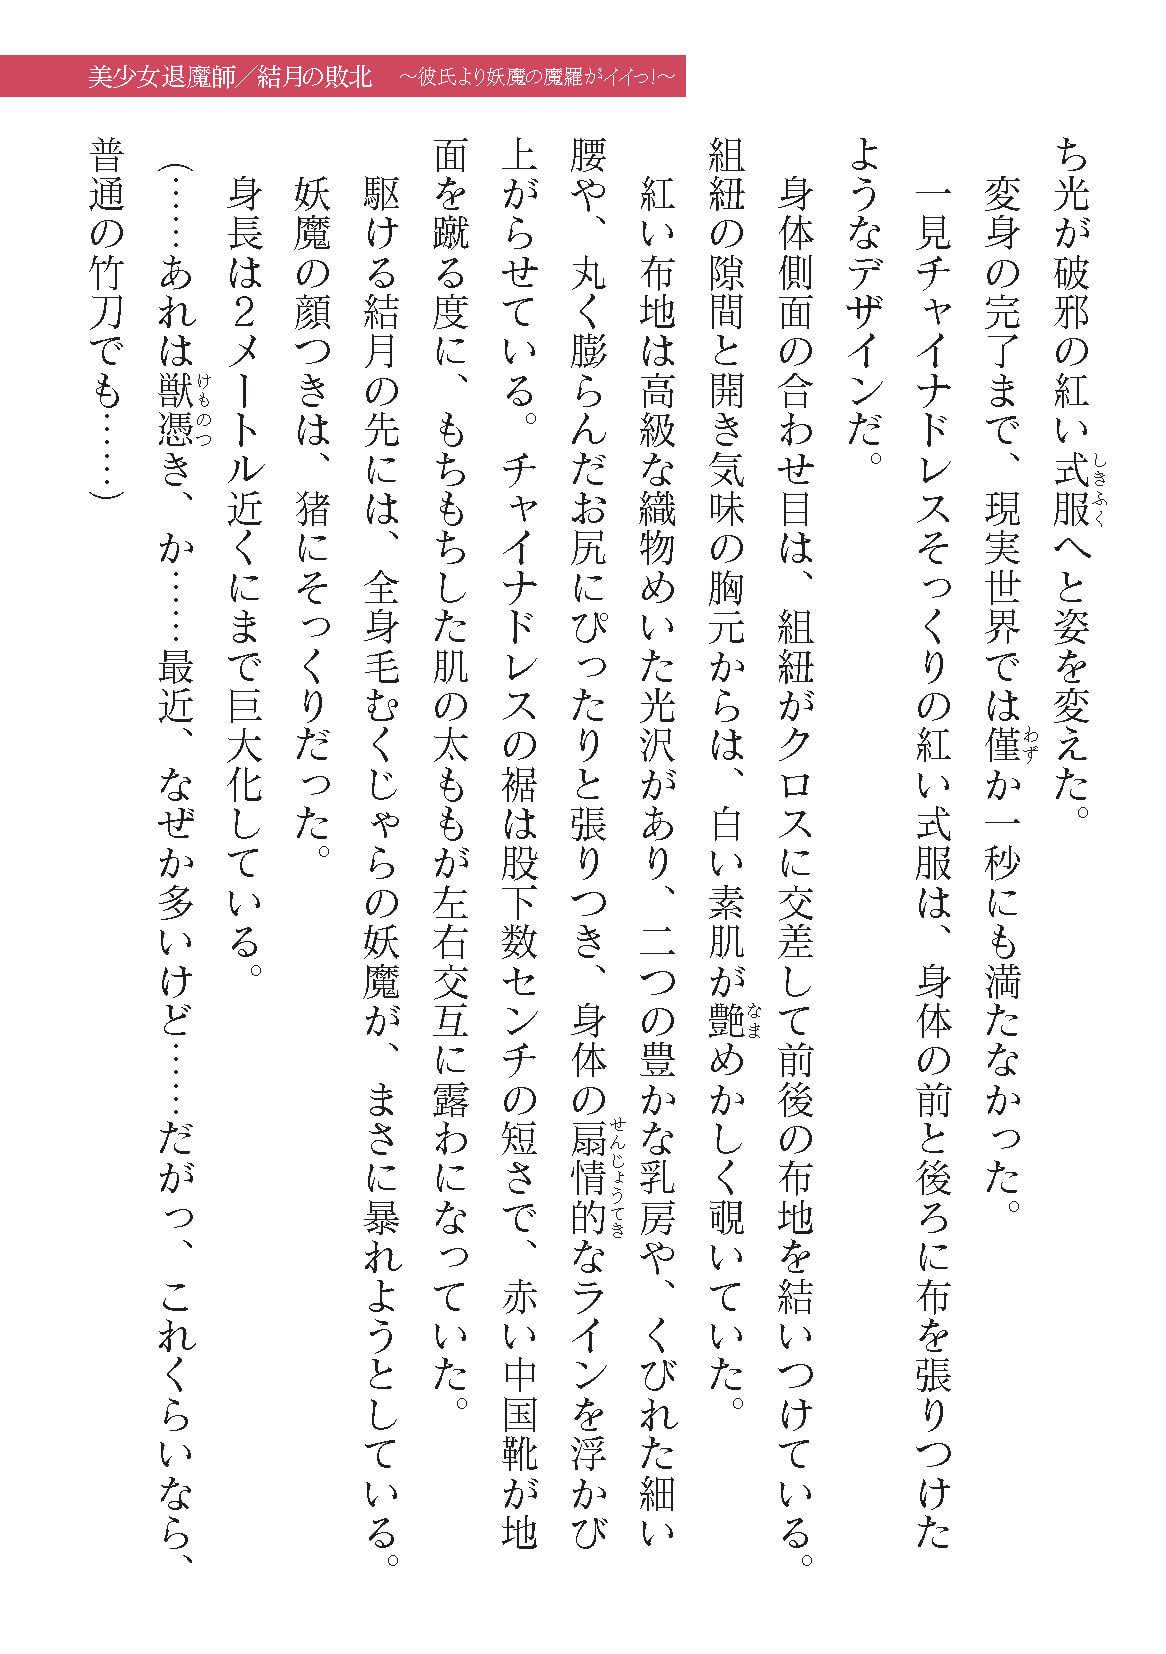 美少女退魔師／結月の敗北　～彼氏より妖魔の魔羅がイイっ！～
ち光が破邪の紅い式服へと姿を変えた。
しきふく
変身の完了まで、現実世界では僅か一秒にも満たなかった。
わず
一見チャイナドレスそっくりの紅い式服は、身体の前と後ろに布を張りつけた
ようなデザインだ。
身体側面の合わせ目は、組紐がクロスに交差して前後の布地を結いつけている。
組紐の隙間と開き気味の胸元からは、白い素肌が艶めかしく覗いていた。
なま
紅い布地は高級な織物めいた光沢があり、二つの豊かな乳房や、くびれた細い
腰や、丸く膨らんだお尻にぴったりと張りつき、身体の扇情的なラインを浮かび
せんじょうてき
上がらせている。チャイナドレスの裾は股下数センチの短さで、赤い中国靴が地
面を蹴る度に、もちもちした肌の太ももが左右交互に露わになっていた。
駆ける結月の先には、全身毛むくじゃらの妖魔が、まさに暴れようとしている。
妖魔の顔つきは、猪にそっくりだった。
身長は２メートル近くにまで巨大化している。
（……あれは獣憑き、か……最近、なぜか多いけど……だがっ、これくらいなら、
けものつ
普通の竹刀でも……）